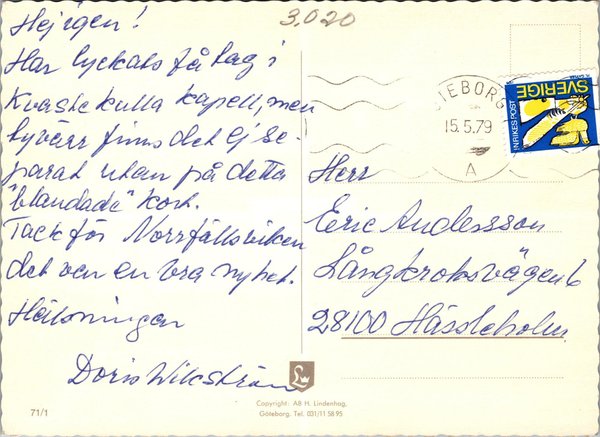 3.020
Hej igen!
Har lyckats få tag i
Kvastekulla kapell, men
tyvärr finns det ej se-
parat utan på detta
"blandade" kort.
Tack för Norrfällsviken
det var en bra nyhet.
Hälsningar
Doris Wikström
GÖTEBORG
15.5.79
A
SVERIGE
INRIKES POST
Herr
Eric Andersson
Långkroksvägen 6
28100 Hässleholm
71/1
Copyright: AB H. Lindenhag,
Göteborg. Tel. 031/11 58 95